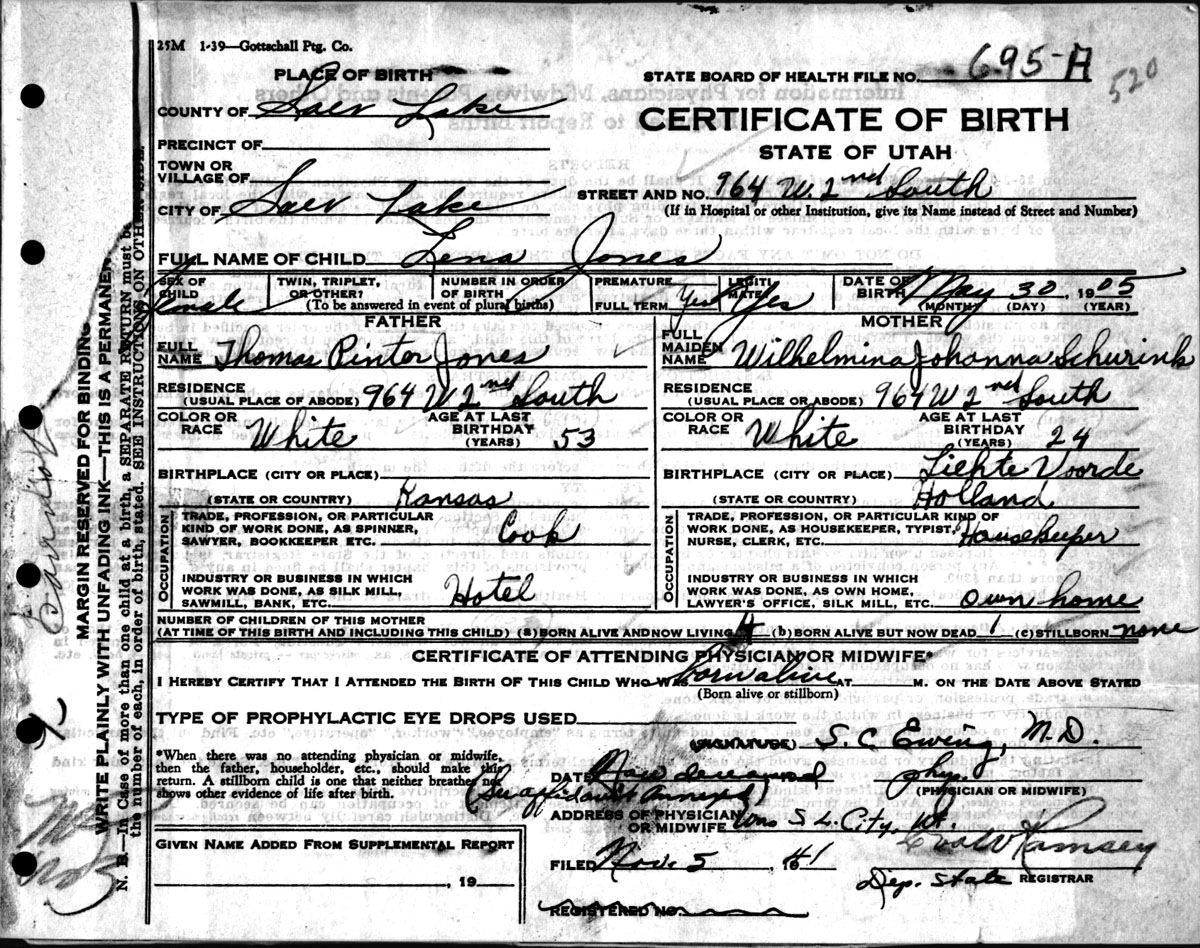 25M 1-39—Gottschall Ptg. Co.
PLACE OF BIRTH
STATE BOARD OF HEALTH FILE NO. 695-A
520
COUNTY OF Salt Lake
CERTIFICATE OF BIRTH
PRECINCT OF
STATE OF UTAH
TOWN OR
VILLAGE OF
STREET AND NO. 964 W. 2nd South
CITY OF Salt Lake
(If in Hospital or other Institution, give its Name instead of Street and Number)
FULL NAME OF CHILD Lena Jones
SEX OF CHILD Female
TWIN, TRIPLET, OR OTHER?
NUMBER IN ORDER OF BIRTH
(To be answered in event of plural births)
PREMATURE
FULL TERM Yes
LEGITIMATE Yes
DATE OF BIRTH May 30, 1905
(MONTH) (DAY) (YEAR)
FATHER
FULL NAME Thomas Pinter Jones
RESIDENCE
(USUAL PLACE OF ABODE) 964 W 2nd South
COLOR OR RACE White AGE AT LAST BIRTHDAY (YEARS) 53
BIRTHPLACE (CITY OR PLACE)
(STATE OR COUNTRY) Kansas
OCCUPATION
TRADE, PROFESSION, OR PARTICULAR
KIND OF WORK DONE, AS SPINNER,
SAWYER, BOOKKEEPER ETC. Cook
INDUSTRY OR BUSINESS IN WHICH
WORK WAS DONE, AS SILK MILL,
SAWMILL, BANK, ETC. Hotel
MOTHER
FULL MAIDEN NAME Wilhelmina Johanna Schurink
RESIDENCE
(USUAL PLACE OR ABODE) 964 W 2nd South
COLOR OR RACE White AGE AT LAST BIRTHDAY (YEARS) 24
BIRTHPLACE (CITY OR PLACE) Liehte Voorde
(STATE OR COUNTRY) Holland
OCCUPATION
TRADE, PROFESSION, OR PARTICULAR KIND OF
WORK DONE, AS HOUSEKEEPER, TYPIST,
NURSE, CLERK, ETC. Housekeeper
INDUSTRY OR BUSINESS IN WHICH
WORK WAS DONE, AS OWN HOME,
LAWYER'S OFFICE, SILK MILL, ETC. own home
NUMBER OF CHILDREN OF THIS MOTHER
(AT TIME OF THIS BIRTH AND INCLUDING THIS CHILD) (a) BORN ALIVE AND NOW LIVING 4 (b) BORN ALIVE BUT NOW DEAD 1 (c) STILLBORN none
CERTIFICATE OF ATTENDING PHYSICIAN OR MIDWIFE*
I HEREBY CERTIFY THAT I ATTENDED THE BIRTH OF THIS CHILD WHO WAS born alive AT M. ON THE DATE ABOVE STATED
(Born alive or stillborn)
TYPE OF PROPHYLACTIC EYE DROPS USED
*When there was no attending physician or midwife,
then the father, householder, etc., should make this
return. A stillborn child is one that neither breathes nor
shows other evidence of life after birth.
(SIGNATURE) S. C. Ewing, M.D.
DATE Now deceased phy.
(PHYSICIAN OR MIDWIFE)
(See affidavit annexed)
ADDRESS OF PHYSICIAN
OR MIDWIFE was S L. City, Ut.
GIVEN NAME ADDED FROM SUPPLEMENTAL REPORT
, 19
FILED Nov. 5, 1941
Ramsey
Dep. State REGISTRAR
REGISTERED NO.
MARGIN RESERVED FOR BINDING
WRITE PLAINLY WITH UNFADING INK—THIS IS A PERMANEN
N. B.—In Case of more than one child at a birth, a SEPARATE RETURN must be
the number of each, in order of birth, stated. SEE INSTRUCTIONS ON OTHE SIDE.